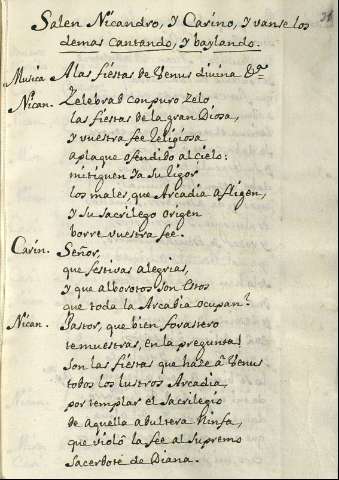 31
Salen Nicandro, y Carino, y vanse los
demas cantando, y baylando.
Musica A las fiestas de Venus divina &ª
Nican. Zelebrad con puro zelo
las fiestas de la gran Diosa,
y vuestra fee Religiosa
aplaque ofendido al cielo:
mitiguen ya su rigor
los males, que Arcadia afligen,
y su sacrilego origen
borre vuestra fee.
Carin. Señor,
que festivas alegrias,
y que alborotos son estos
que toda la Arcadia ocupan?
Nican. Pastor, que bien forastero
te muestras, en la pregunta!
Son las fiestas que haze a Venus
todos los lustros Arcadia,
por templar el sacrilegio
de aquella adultera Ninfa,
que violô la fee al supremo
Sacerdote de Diana.